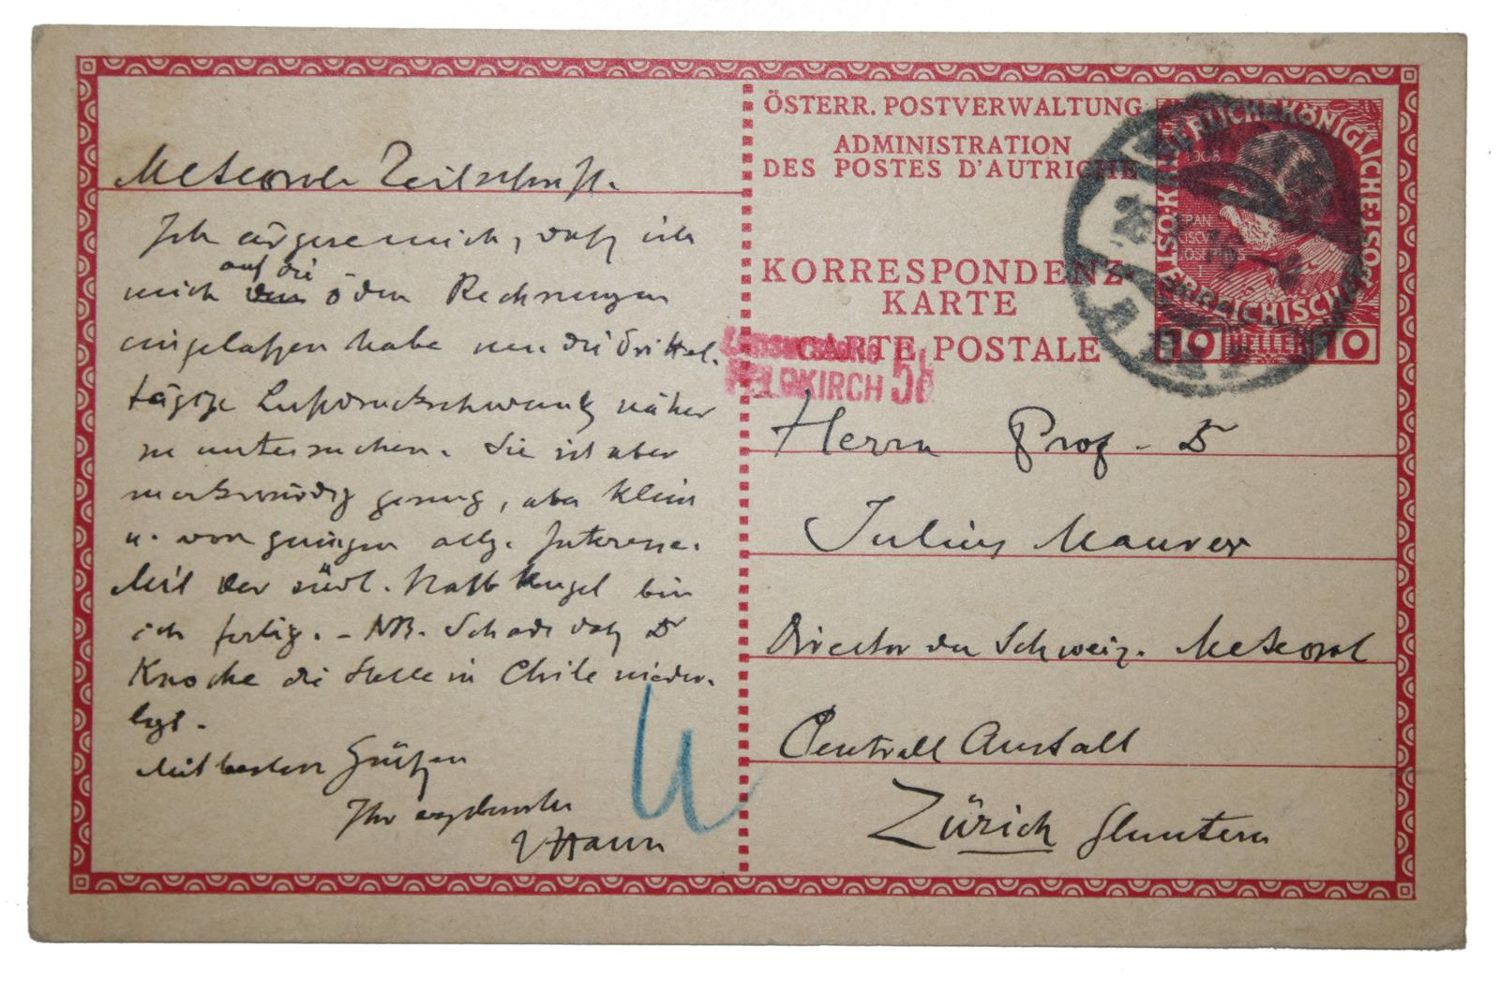 Meteorol. Zeitschrift.
Ich ärgere mich, daß ich
auf die
mich den öden Rechnungen
eingelassen habe um die drittel-
tägige Luftdruckschwankg näher
zu untersuchen. Sie ist aber
merkwürdig genug, aber klein
u. von geringem allg. Interesse.
Mit der südl. Halbkugel bin
ich fertig. - NB. Schade daß Dr
Knoche die Stelle in Chile nieder-
legt.
Mit besten Grüßen
Ihr ergebenster
JHann
ÖSTERR. POSTVERWALTUNG
ADMINISTRATION
DES POSTES D'AUTRICHE
KORRESPONDENZ-
KARTE
CARTE POSTALE
FELDKIRCH
KAISERLICHE·KÖNIGLICHE·ÖSTERREICHISCHE·POST
1908
FRAN
CISCVS
JOSEPHVS
I
10 HELLER 10
WIEN
Herrn Prof. Dr
Julius Maurer
Director der Schweiz. Meteorol
Centrall Anstalt
Zürich Gluntern